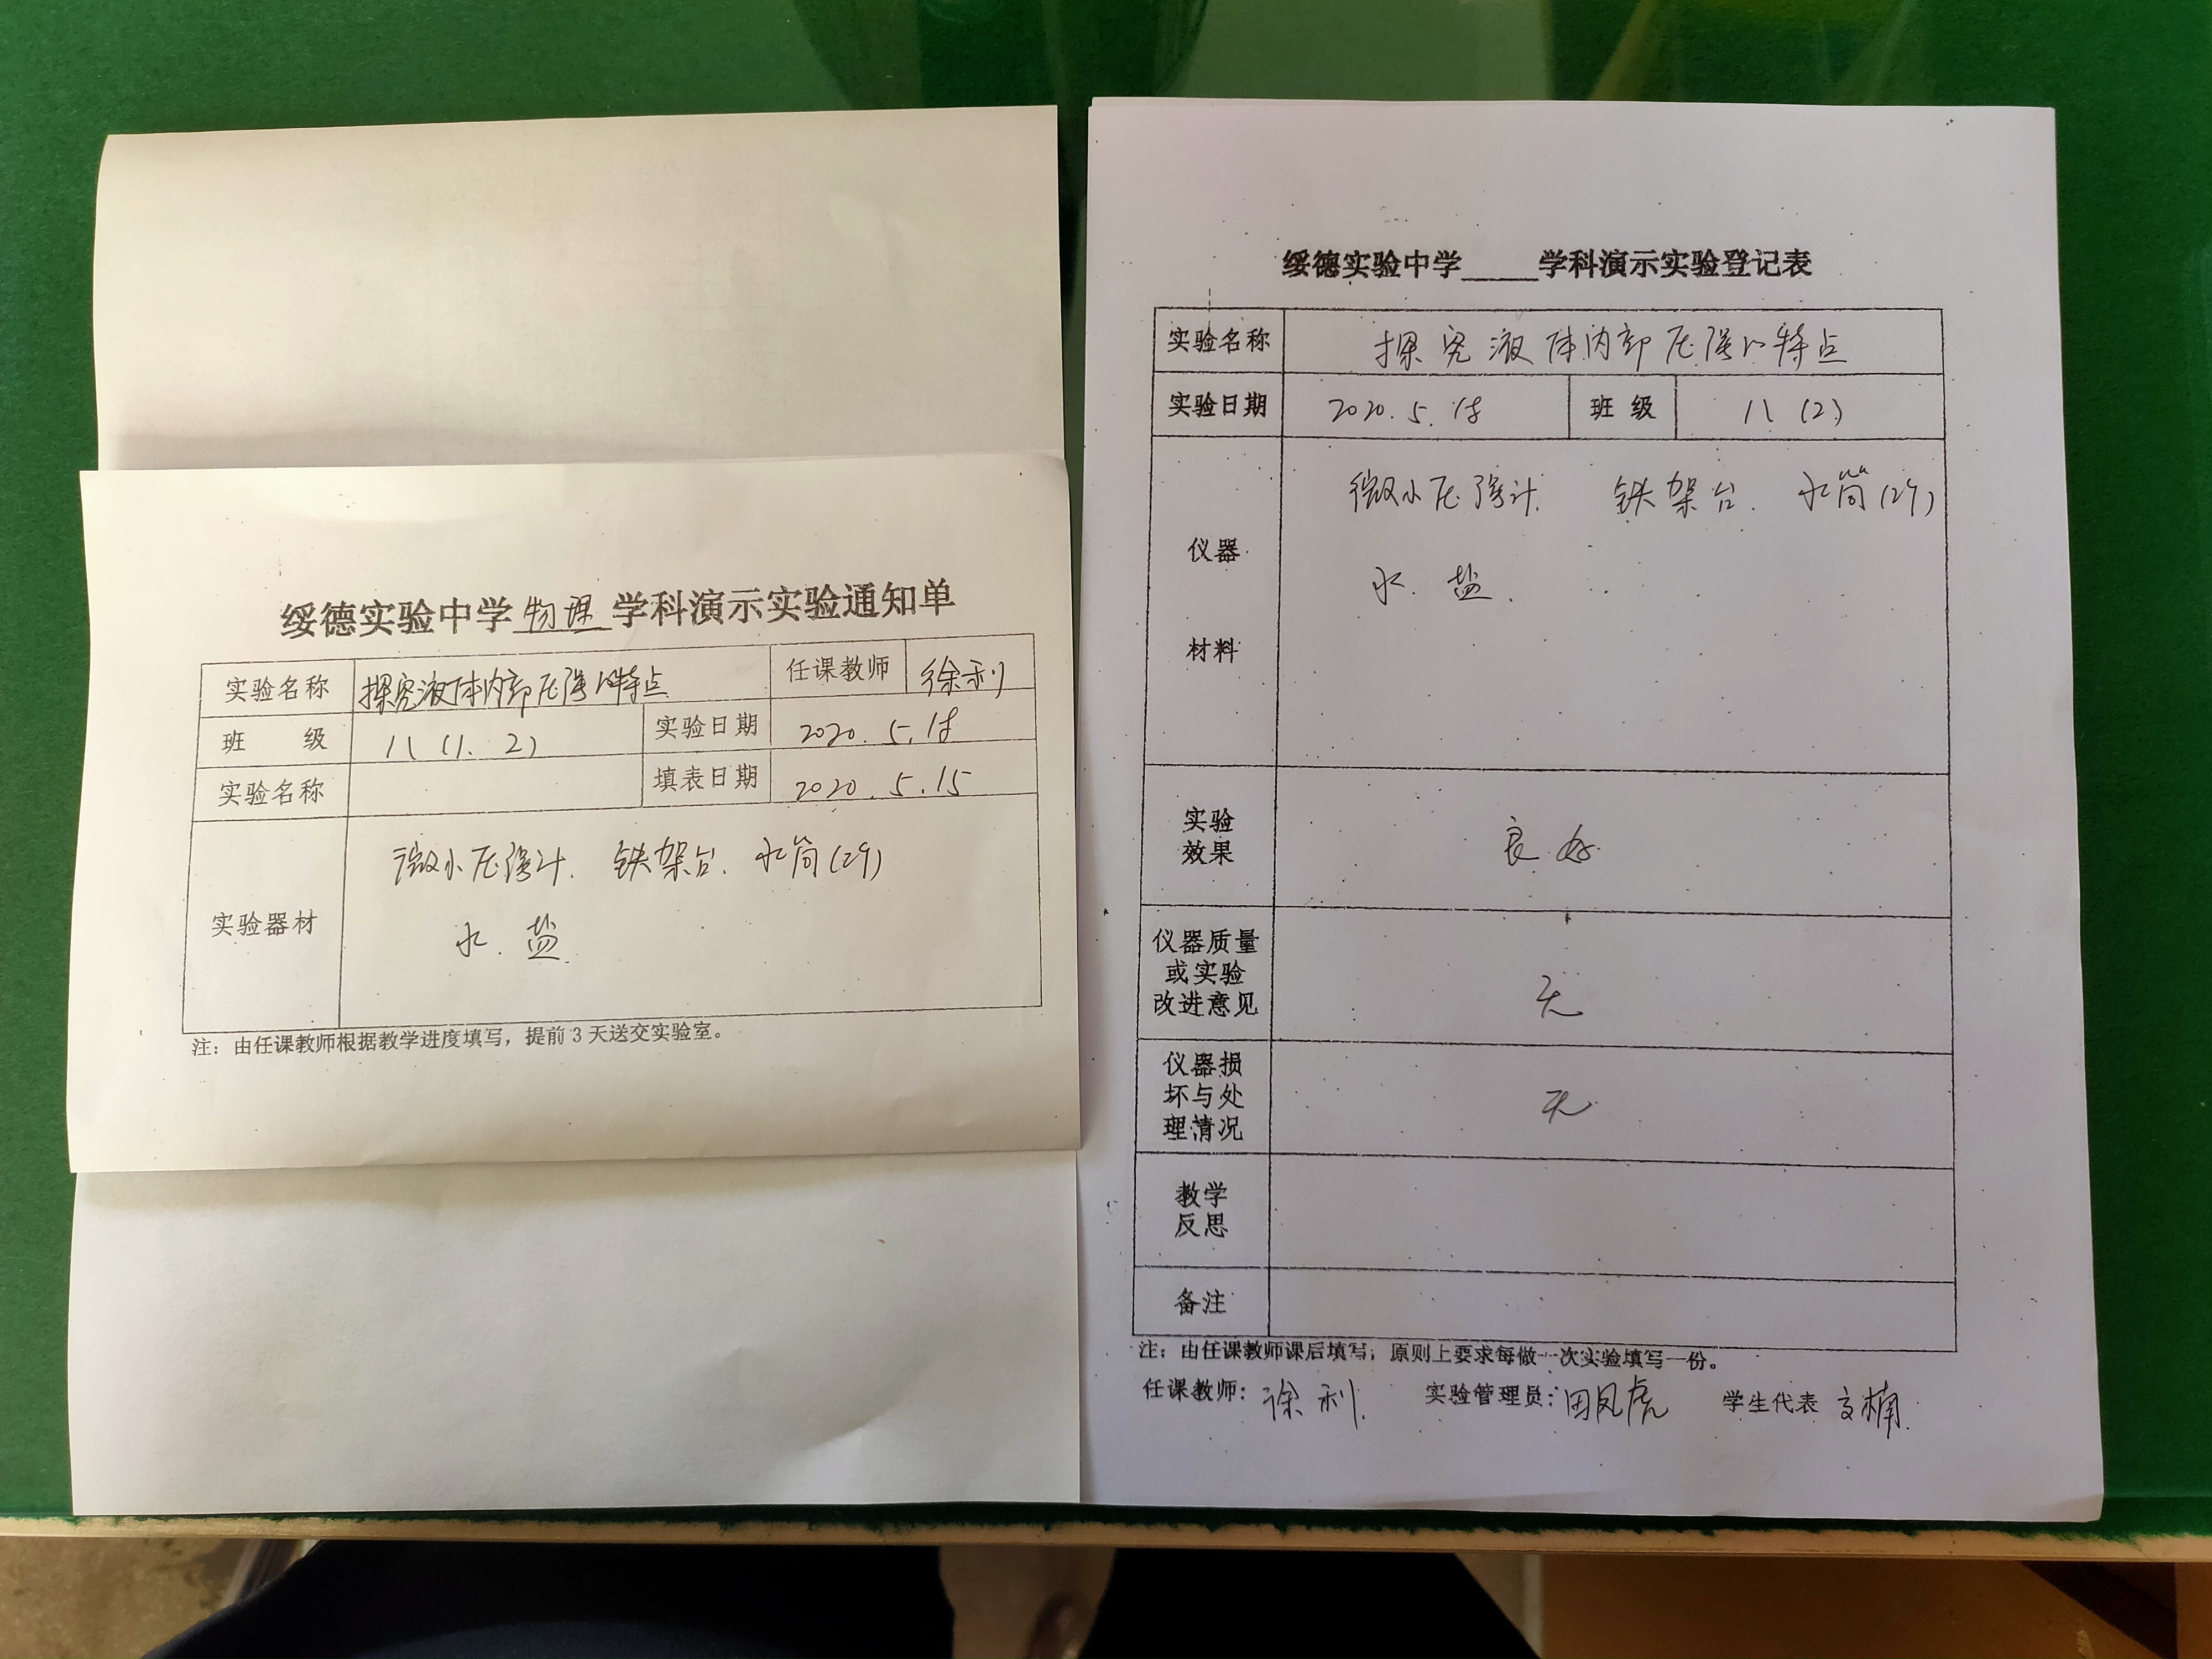 绥德实验中学物理学科演示实验通知单
实验名称 探究液体内部压强的特点 任课教师 徐利
班 级 八(1.2) 实验日期 2020.5.18
实验名称 填表日期 2020.5.15
实验器材 微小压强计. 铁架台. 水筒(2个)
水. 盐.
注：由任课教师根据教学进度填写，提前3天送交实验室。
绥德实验中学____学科演示实验登记表
实验名称 探究液体内部压强的特点
实验日期 2020.5.18 班 级 八(2)
仪器 材料 微小压强计. 铁架台. 水筒(2个)
水. 盐.
实验效果 良好.
仪器质量或实验改进意见 无
仪器损坏与处理情况 无
教学反思
备注
注：由任课教师课后填写，原则上要求每做一次实验填写一份。
任课教师：徐利. 实验管理员：田凤虎 学生代表 楠.